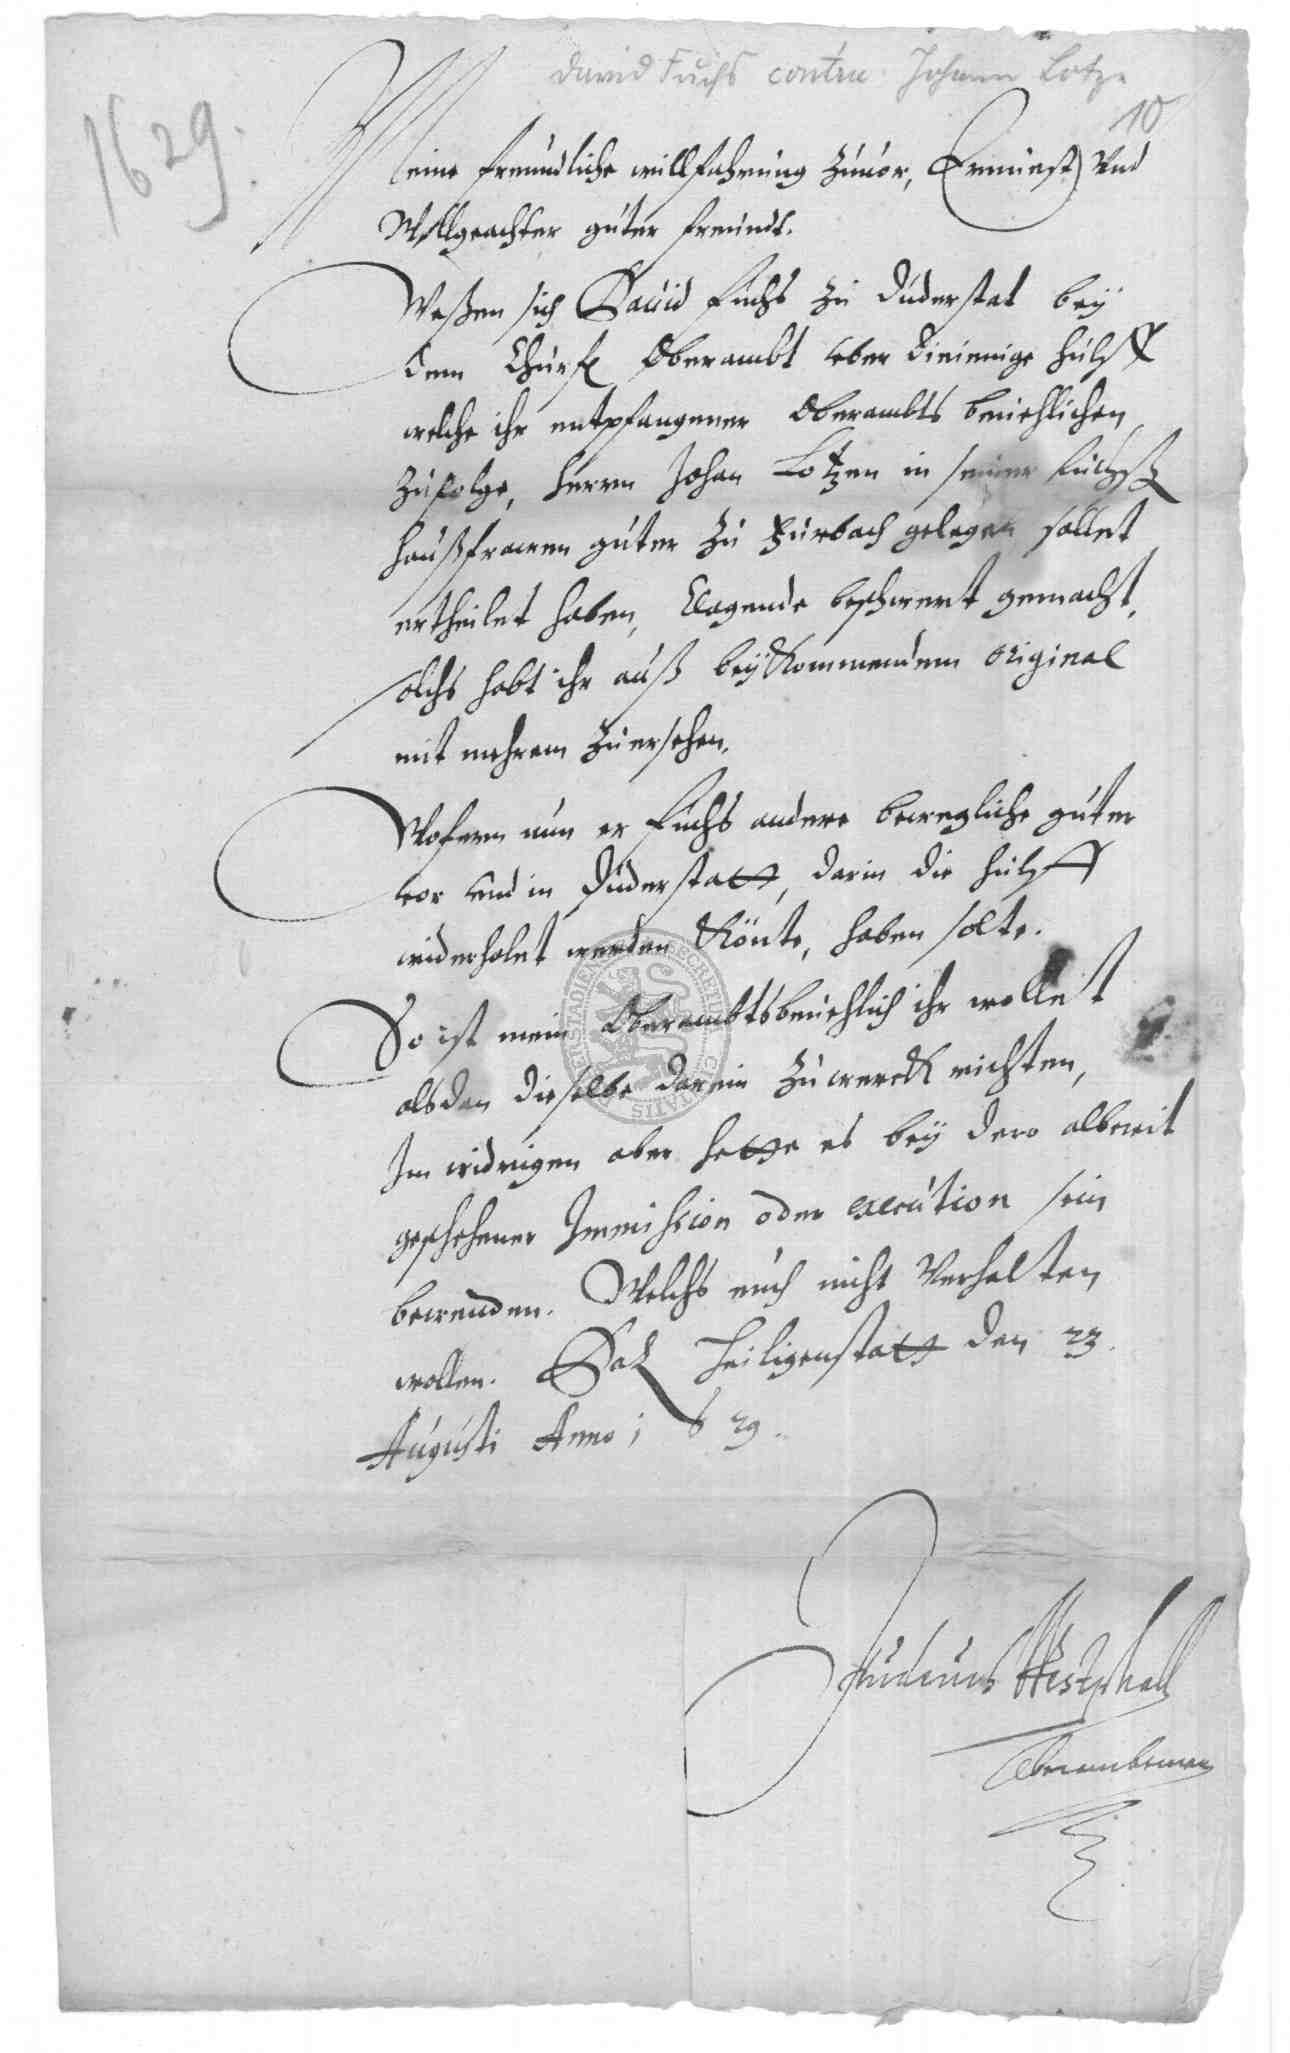 David Fuchs contra Johann Lotze
10
1629.
Meine freundliche willfahrung zuuor, Ernuest Vnd
Wollgeachter guter freundt.
Weßen sich Dauid Fuchs zu Duderstat beÿ
dem Churf. Oberambt vber dieienige hülff
welche ihr entpfangener Oberambts beuehlichen
zufolge, herrn Johan Lotzen in seiner
haußfrawen güter zu gelegen sollet
ertheilet haben, Clagende beschwert gemacht,
solchs habt ihr auß beÿkommendem original
mit mehrem zuersehen.
Wofern nun er Fuchs andere bewegliche güter
vor vnd in Duderstatt, darin die hülff
widerholet werden könte, haben solte.
So ist mein Oberambtsbeuehlich ihr wollet
alsdan dieselbe darein zu werck richten,
Im widrigen aber hette es beÿ dero albereit
geschehener Immission oder execution sein
bewenden. Welchs euch nicht Verhalten
wollen. Dat. Heiligenstatt den 23.
Augusti Anno 1629.
Westphall
Oberambtman
SECRETUM CIVITATIS